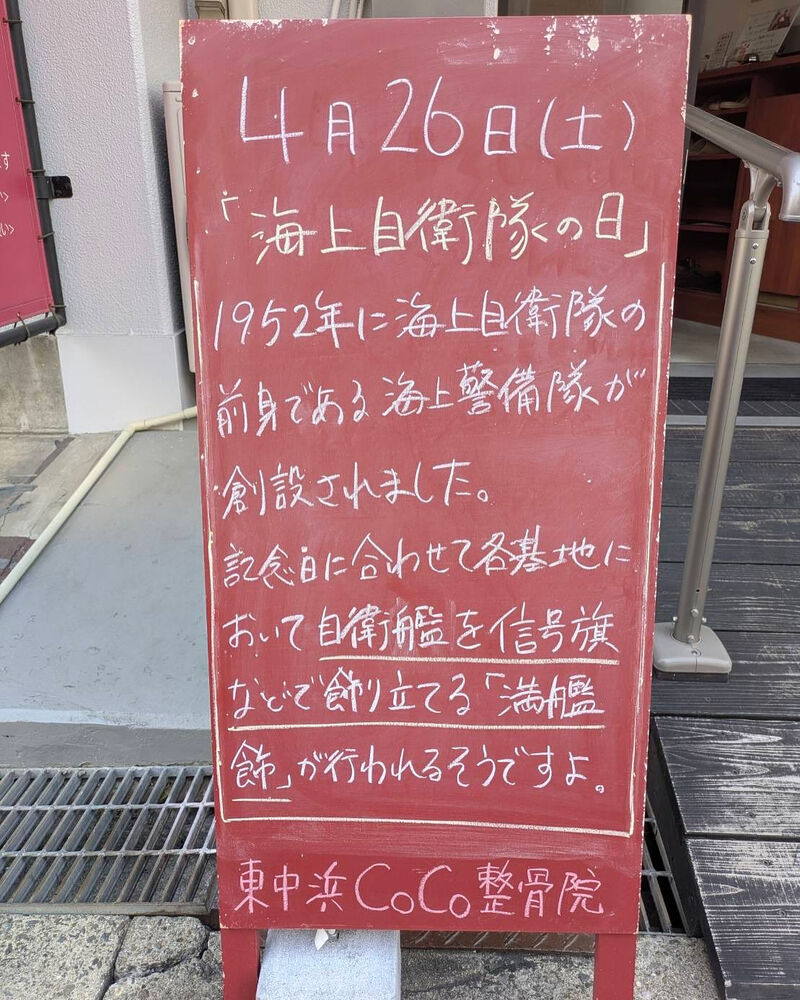 4月26日(土)
「海上自衛隊の日」
1952年に海上自衛隊の
前身である海上警備隊が
創設されました。
記念日に合わせて各基地に
おいて自衛艦を信号旗
などで飾り立てる「満艦
飾」が行われるそうですよ。
東中浜CoCo整骨院